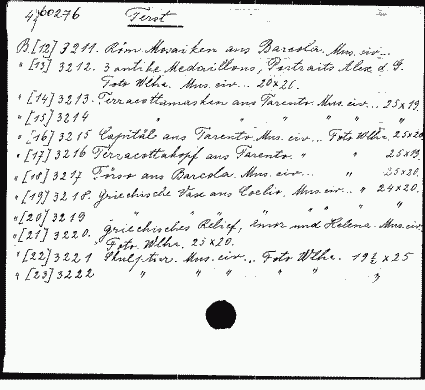 4/60276 Terst
B [12] 3211. Röm. Mosaiken aus Barcola. Mus. civ...
" [13] 3212. 3 antike Medaillons, Portraits Alex. d. G.
Foto Wlha. Mus. civ... 20x26.
" [14] 3213. Terracottamasken aus Tarento. Mus. civ... 25x19.
" [15] 3214 " " " " " "
" [16] 3215 Capitäl aus Tarento. Mus. civ... Foto Wlha. 25x20
" [17] 3216 Terracottakopf aus Tarento. " " 25x19.
" [18] 3217 Torso aus Barcola. Mus. civ... " 25x20.
" [19] 3218. Griechische Vase aus Coelio. Mus. civ... " 24x20.
" [20] 3219 " " " " " "
" [21] 3220. Griechisches Relief, Amor und Helena. Mus. civ.
Foto Wlha. 25x20.
" [22] 3221 Skulptur. Mus. civ... Foto Wlha. 19½ x 25
" [23] 3222 " " " " " "